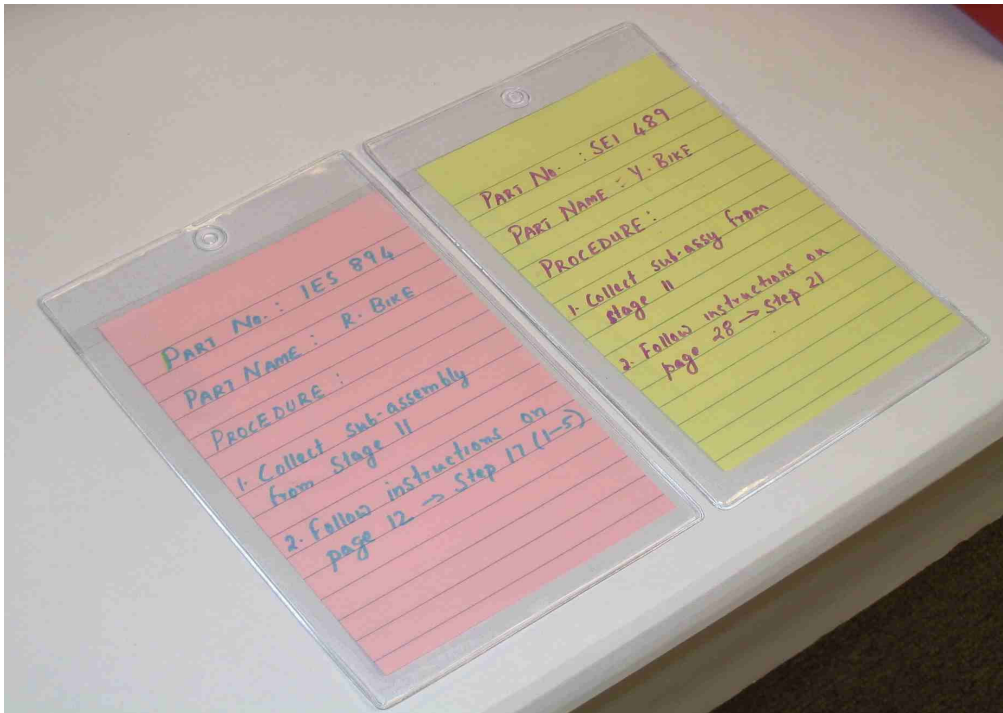 PART No. : IES 894
PART NAME : R. BIKE
PROCEDURE :
1. Collect sub-assembly
from stage 11
2. Follow instructions on
page 12 → Step 17 (1-5)
PART No. : SEI 489
PART NAME : Y. BIKE
PROCEDURE :
1. Collect sub-assy from
stage 11
2. Follow instructions on
page 28 → Step 21